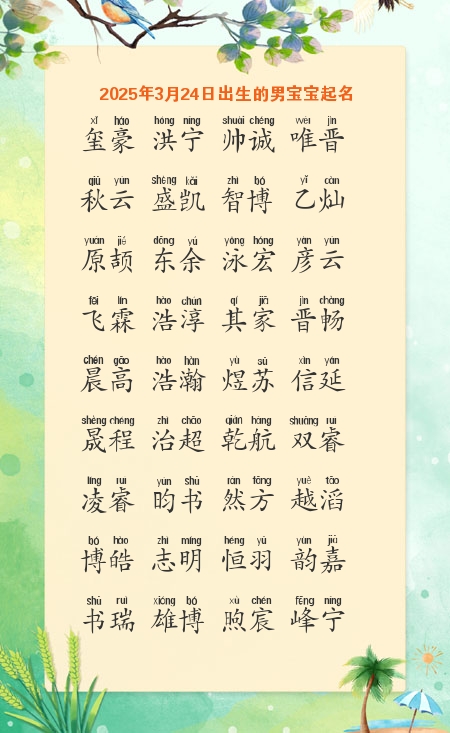 2025年3月24日出生的男宝宝起名
xǐ háo hóng níng shuài chéng wéi jìn
玺豪 洪宁 帅诚 唯晋
qiū yún shèng kǎi zhì bó yǐ càn
秋云 盛凯 智博 乙灿
yuán jié dōng yú yǒng hóng yàn yún
原颉 东余 泳宏 彦云
fēi lín hào chún qí jiā jìn chàng
飞霖 浩淳 其家 晋畅
chén gāo hào hàn yù sū xìn yán
晨高 浩瀚 煜苏 信延
shèng chéng zhì chāo qián háng shuāng ruì
晟程 治超 乾航 双睿
líng ruì yún shū rán fāng yuè tāo
凌睿 昀书 然方 越滔
bó hào zhì míng héng yǔ yùn jiā
博皓 志明 恒羽 韵嘉
shū ruì xióng bó xù chén fēng níng
书瑞 雄博 煦宸 峰宁